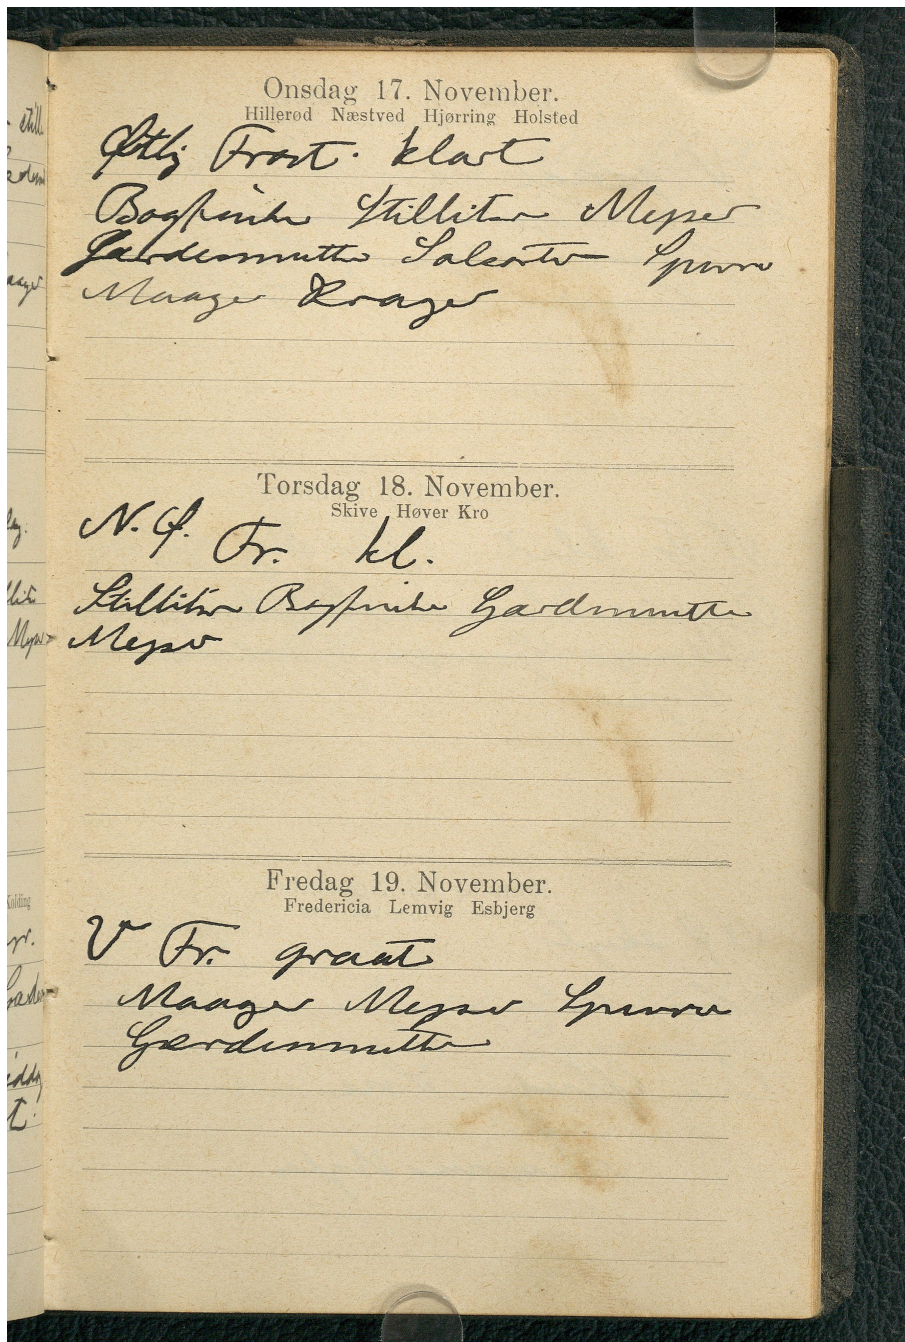 Onsdag 17. November.
Hillerød Næstved Hjørring Holsted
Østlig Frost. klart
Bogfinke Stillitser Mejser
Gærdesmutte Solsorte Spurve
Maager Krager
Torsdag 18. November.
Skive Høver Kro
N. Ø. Fr. kl.
Stillitser Bogfinke Gærdesmutte
Mejser
Fredag 19. November.
Fredericia Lemvig Esbjerg
V Fr. graat
Maager Mejser Spurve
Gærdesmutte